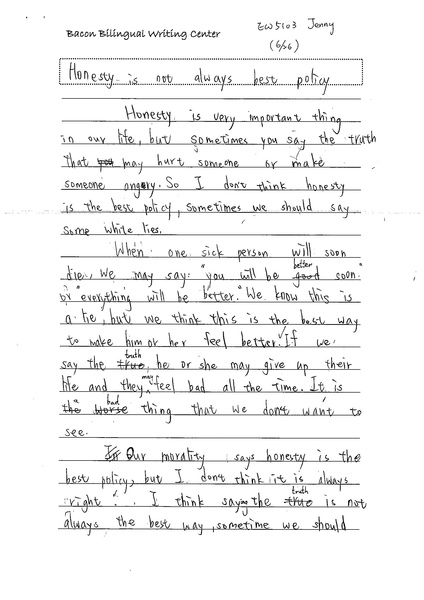 Bacon Bilingual Writing Center
EW5103 Jenny
(6/26)
Honesty is not always best policy
Honesty is very important thing
in our life, but sometimes you say the truth
that may hurt someone or make
someone angry. So I don't think honesty
is the best policy, sometimes we should say
some white lies.
When one sick person will soon
die, we may say: "you will be better soon"
or "everything will be better." We know this is
a lie, but we think this is the best way
to make him or her feel better. If we
say the truth, he or she may give up their
life and they may feel bad all the time. It is
a bad thing that we don't want to
see.
Our morality says honesty is the
best policy, but I don't think it is always
right. I think saying the truth is not
always the best way, sometime we should